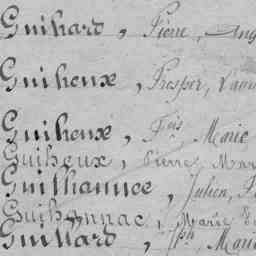 Guihard, Pierre, Aug
Guiheux, Prosper, Laur
Guiheux, Fçis Marie
Guiheux, Pierre Mar
Guilhaumee, Julien, F
Guihonnac, Marie
Guillard, Jph Marie